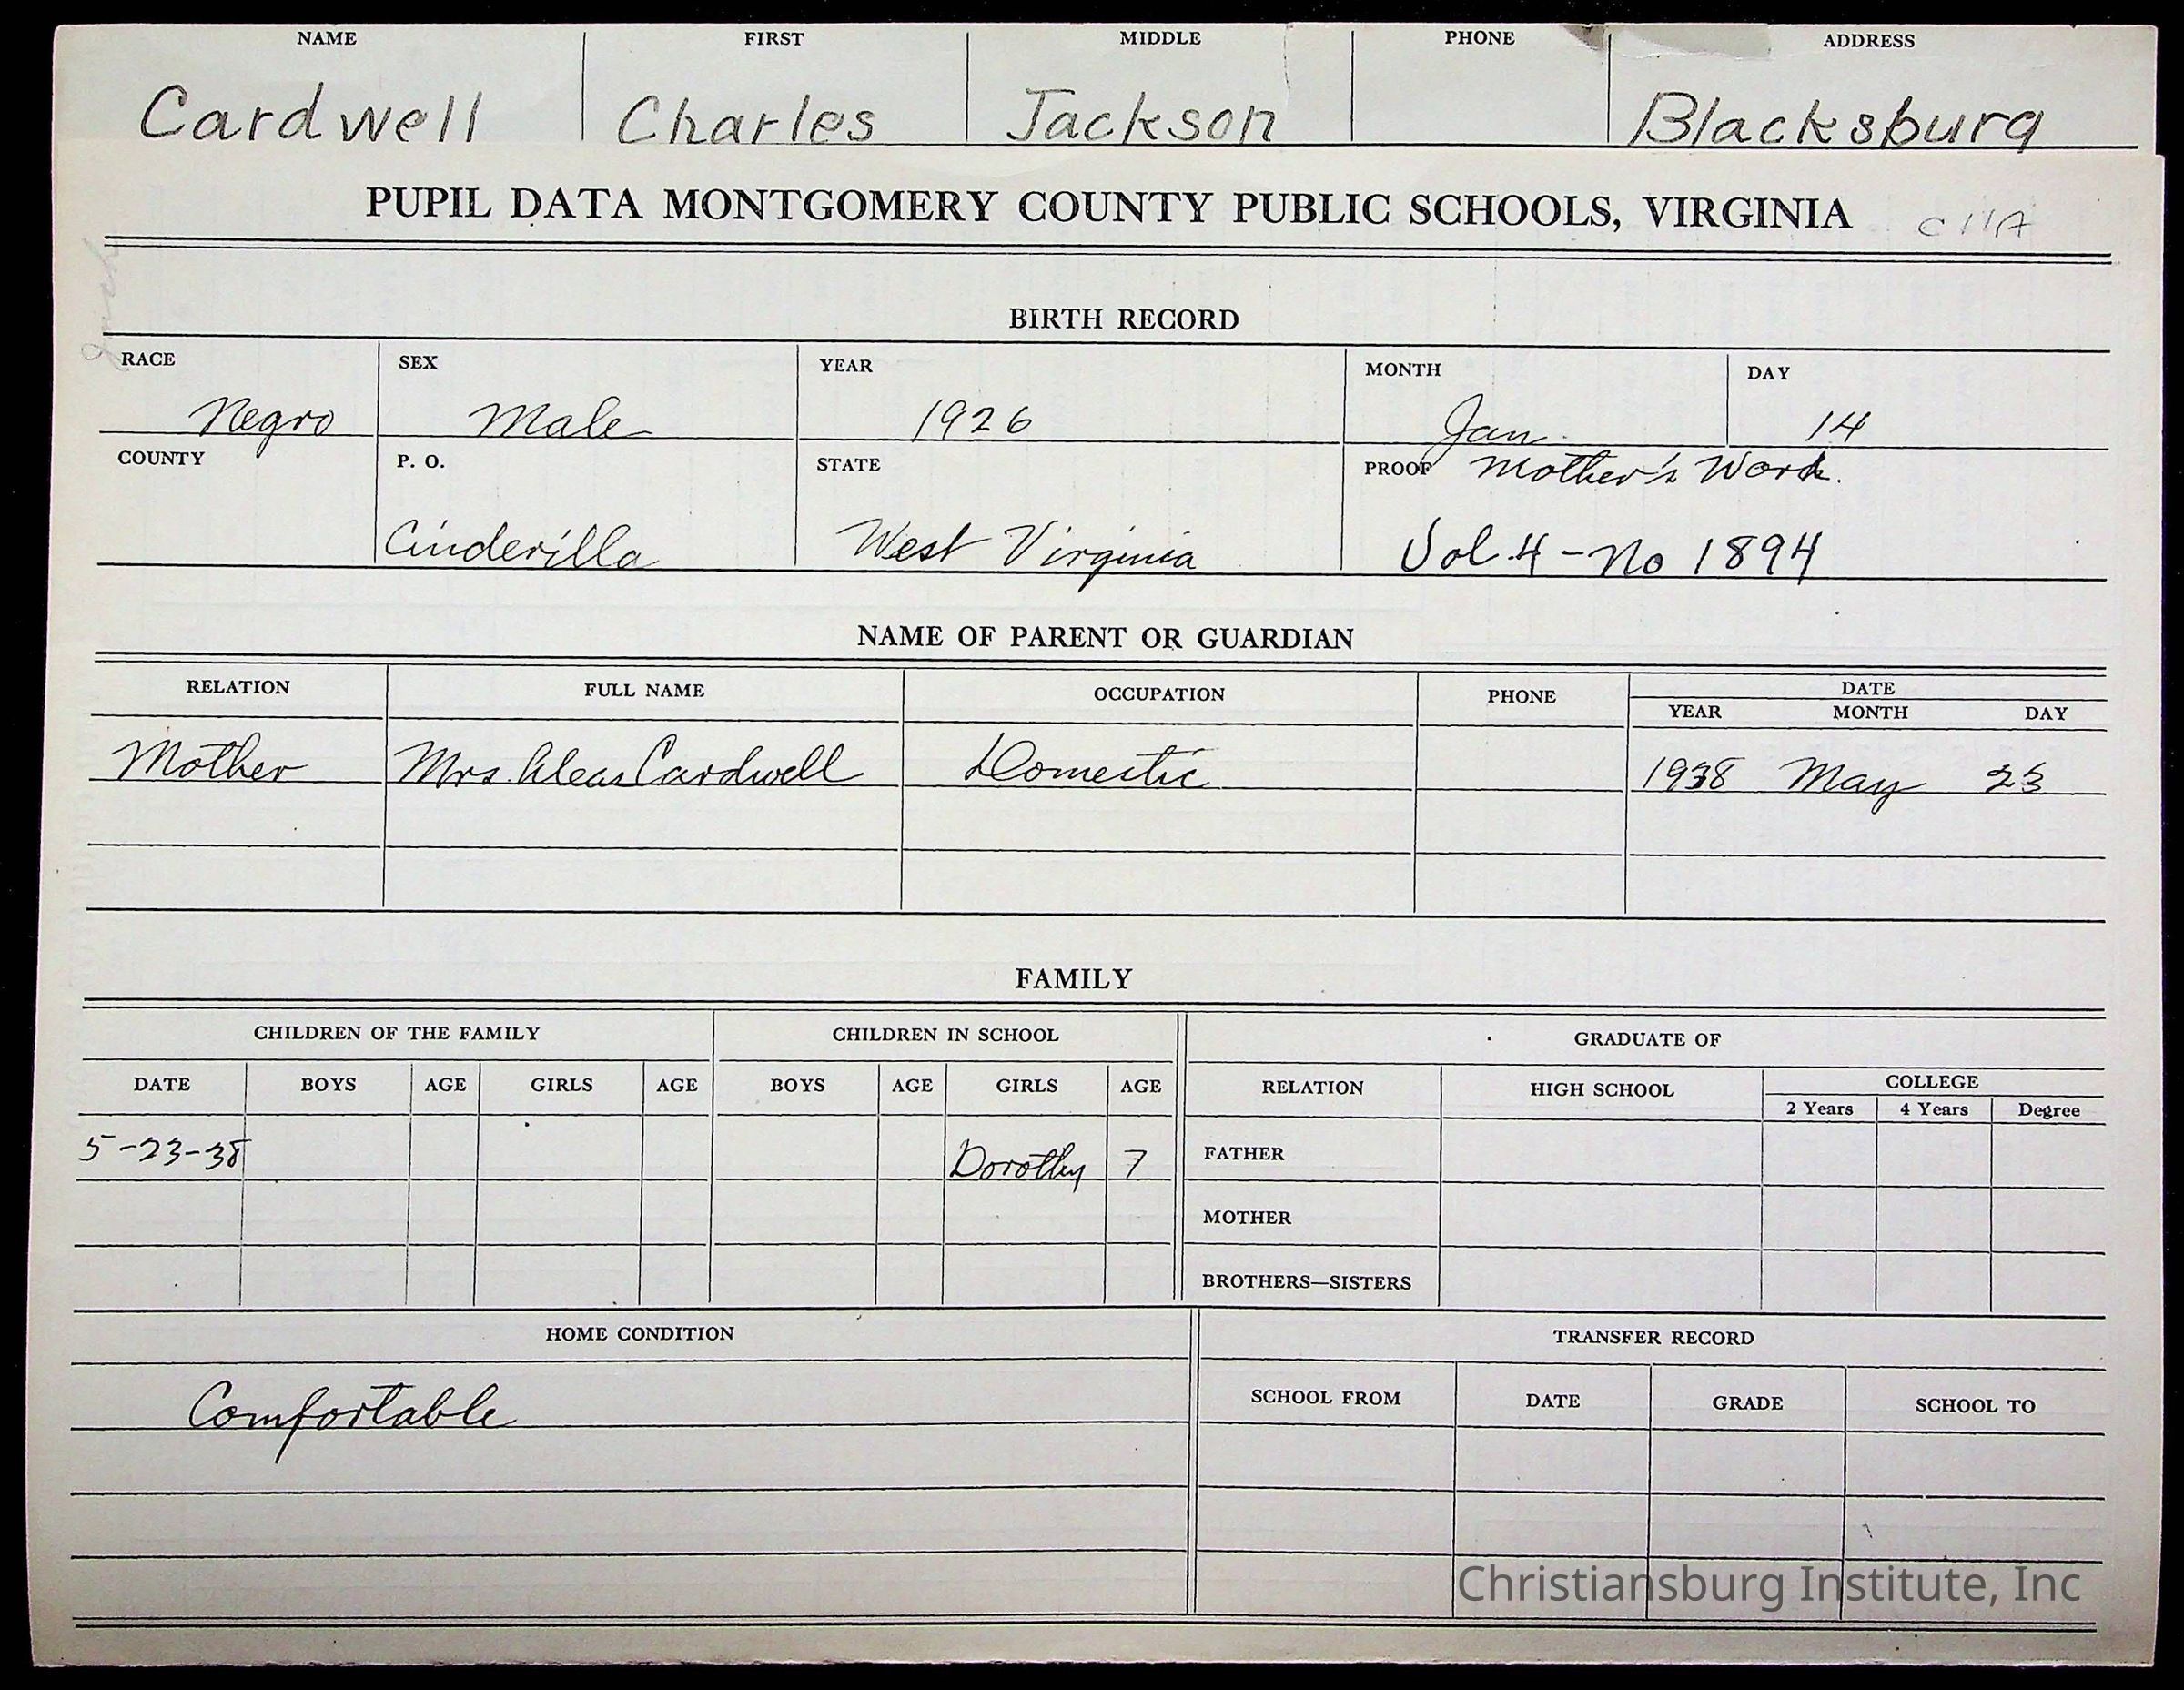 NAME FIRST MIDDLE PHONE ADDRESS
Cardwell Charles Jackson Blacksburg
PUPIL DATA MONTGOMERY COUNTY PUBLIC SCHOOLS, VIRGINIA
BIRTH RECORD
RACE SEX YEAR MONTH DAY
Negro Male 1926 Jan. 14
COUNTY P. O. STATE PROOF Mother's Word.
Cinderilla West Virginia Vol 4 - No 1894
NAME OF PARENT OR GUARDIAN
RELATION FULL NAME OCCUPATION PHONE DATE
YEAR MONTH DAY
Mother Mrs. Cardwell Domestic 1938 May 23
FAMILY
CHILDREN OF THE FAMILY CHILDREN IN SCHOOL GRADUATE OF
DATE BOYS AGE GIRLS AGE BOYS AGE GIRLS AGE RELATION HIGH SCHOOL COLLEGE
2 Years 4 Years Degree
5-23-38 Dorothy 7 FATHER
MOTHER
BROTHERS—SISTERS
HOME CONDITION TRANSFER RECORD
SCHOOL FROM DATE GRADE SCHOOL TO
Comfortable
Christiansburg Institute, Inc